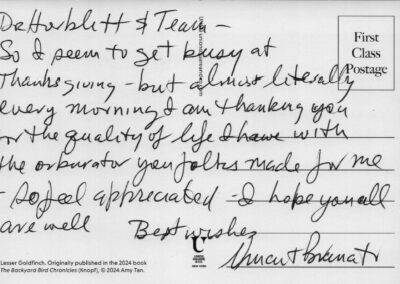 Dr Horblitt & Team –
So I seem to get busy at
Thanksgiving – but almost literally
every morning I am thanking you
for the quality of life I have with
the obturator you folks made for me
– So feel appreciated – I hope you all
are well Best wishes
First
Class
Postage
Lesser Goldfinch. Originally published in the 2024 book
The Backyard Bird Chronicles (Knopf), © 2024 Amy Tan.
NEW YORK